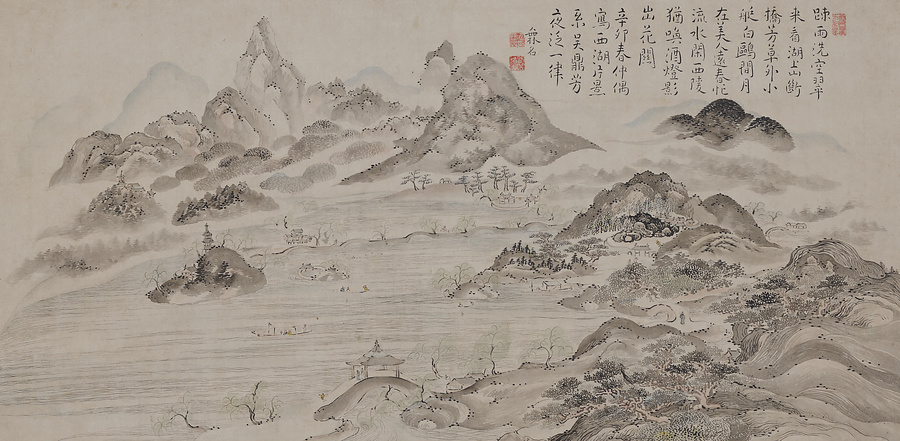 踈雨洗空翠
来看湖上山斷
橋芳草外小
艇白鷗間月
在美人遠春忙
流水閒西陵
猶喚酒燈影
出花關
辛卯春仲偶
寫西湖片景
系吴鼎芳
夜泛一律